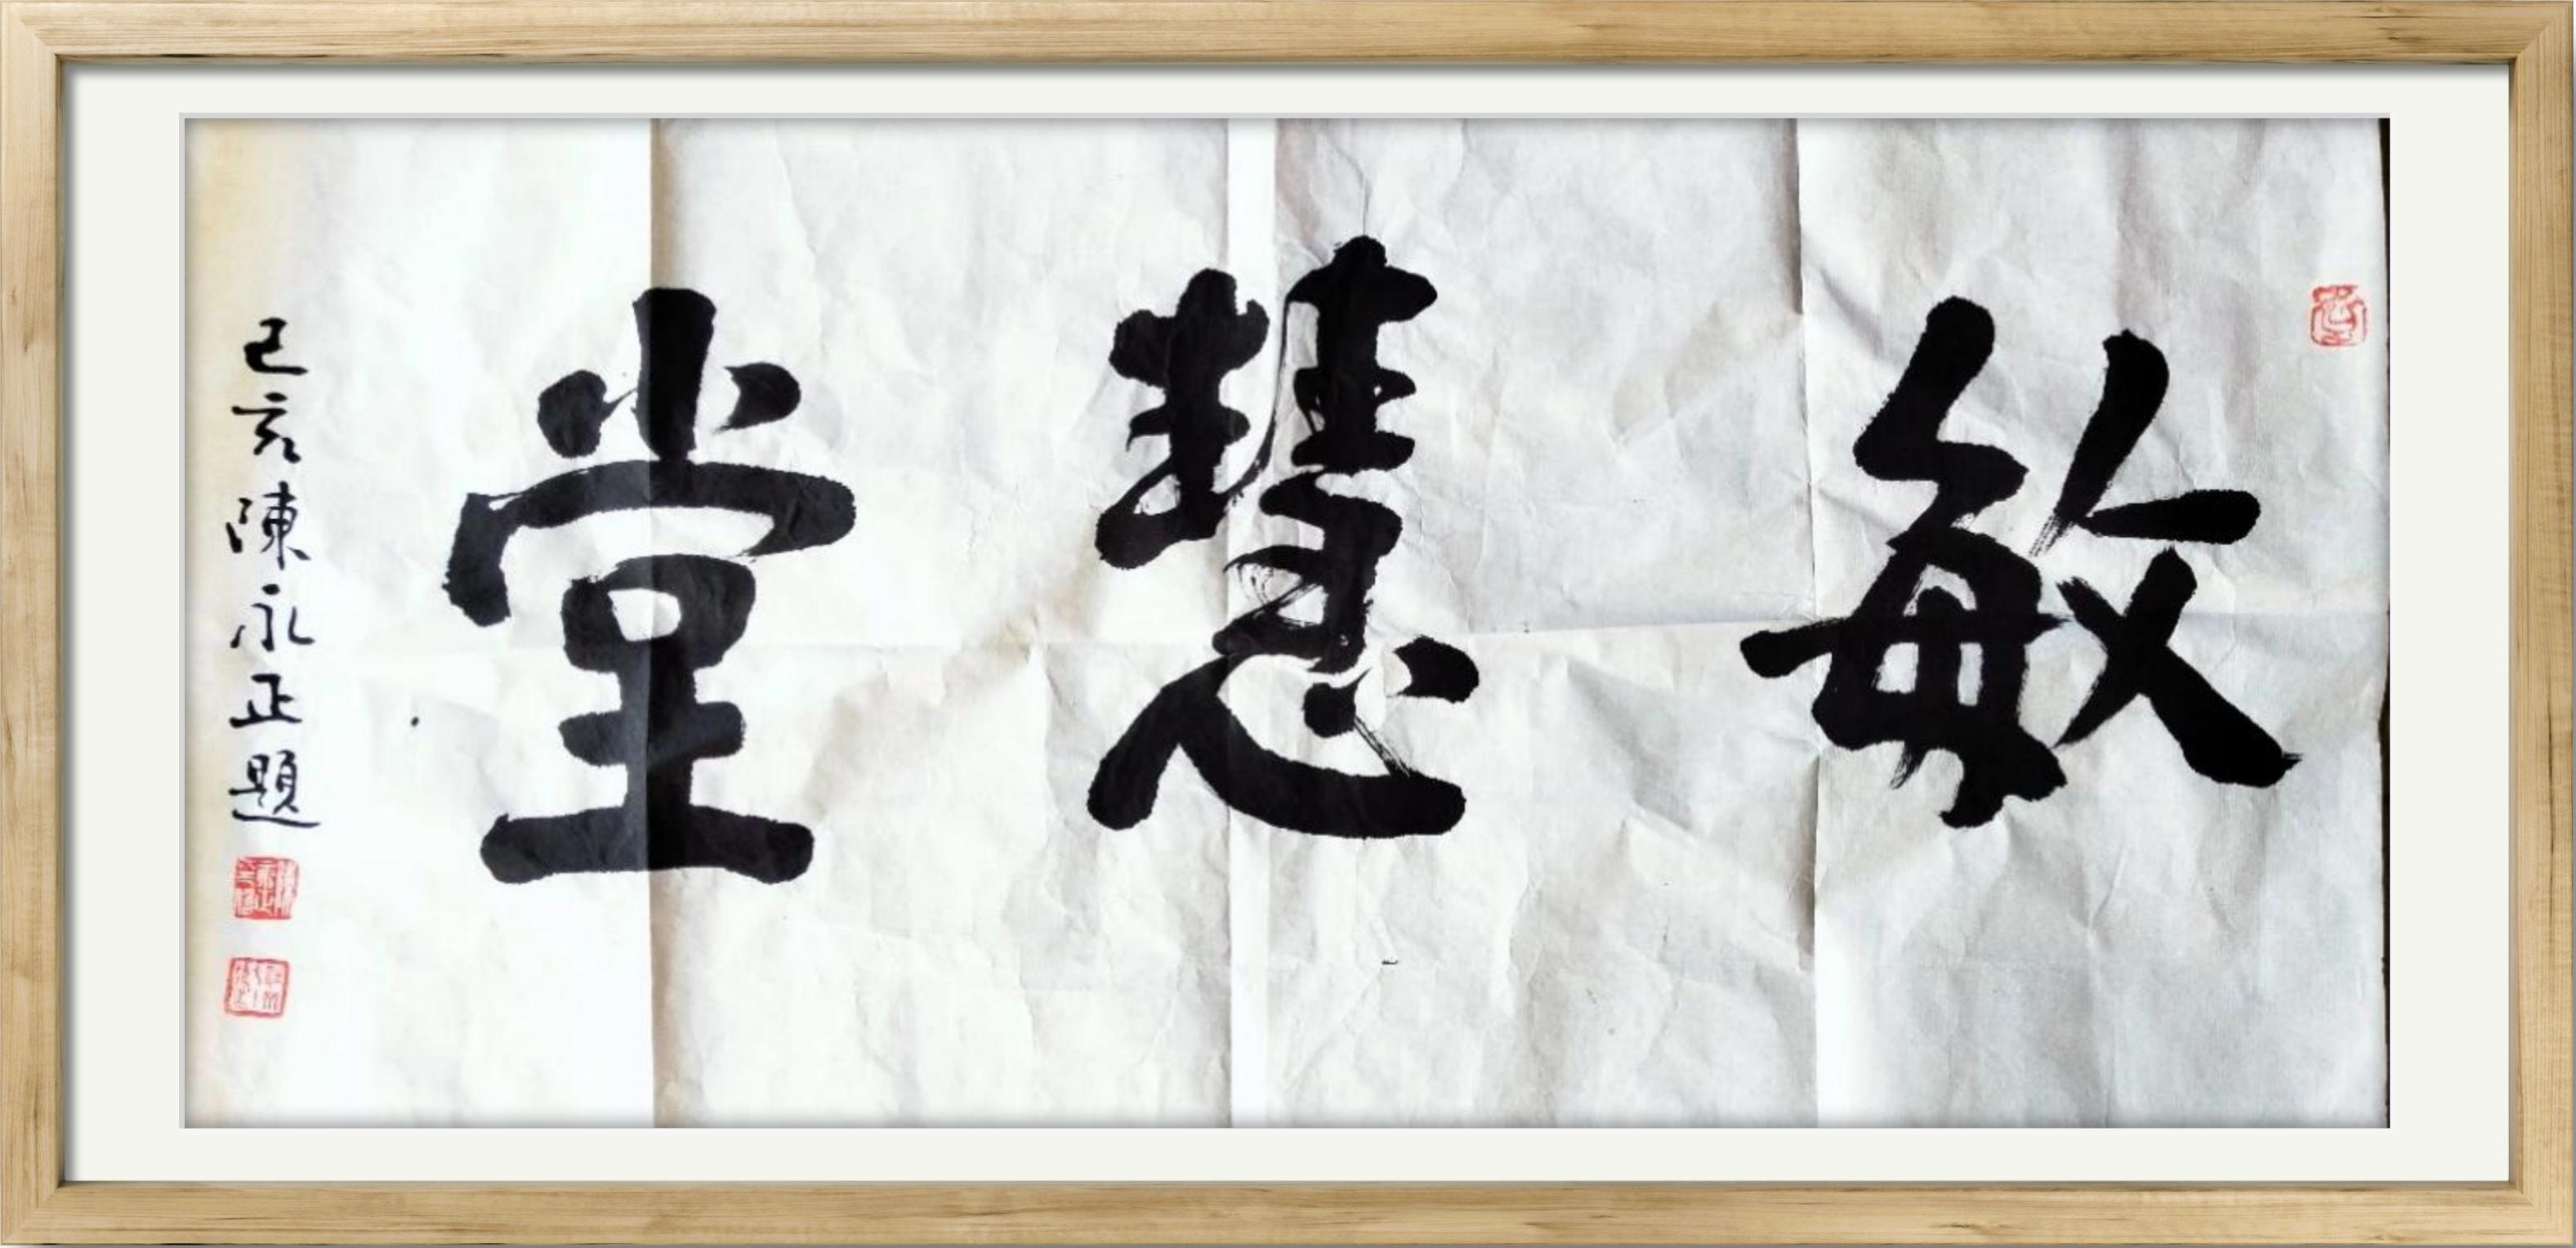 敏慧堂
己亥陳永正題